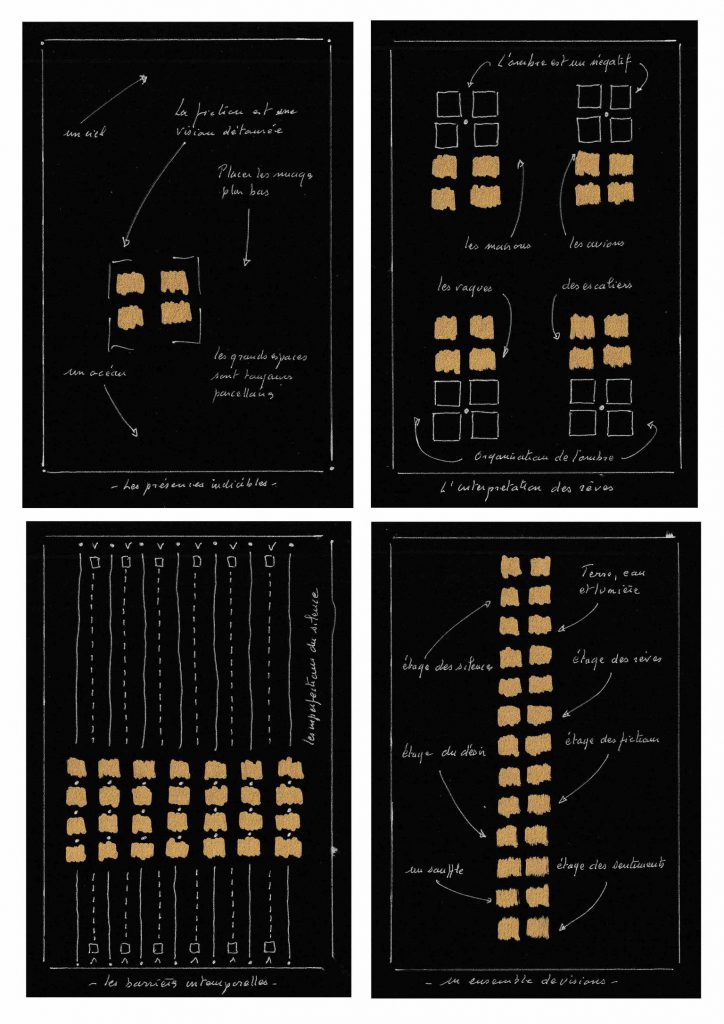 un ciel
La fiction est une
vision détourée
Placer les nuages
plus bas
un océan
les grands espaces
sont toujours
parcellaires
- Les présences indicibles -
L'ombre est un négatif
les maisons
les avions
les vagues
des escaliers
Organisation de l'ombre
L'interprétation des rêves
les imperfections du silence
- les barrières intemporelles -
Terre, eau
et lumière
étage des silences
étage des rêves
étage du désir
étage des fictions
un souffle
étage des sentiments
- un ensemble de visions -